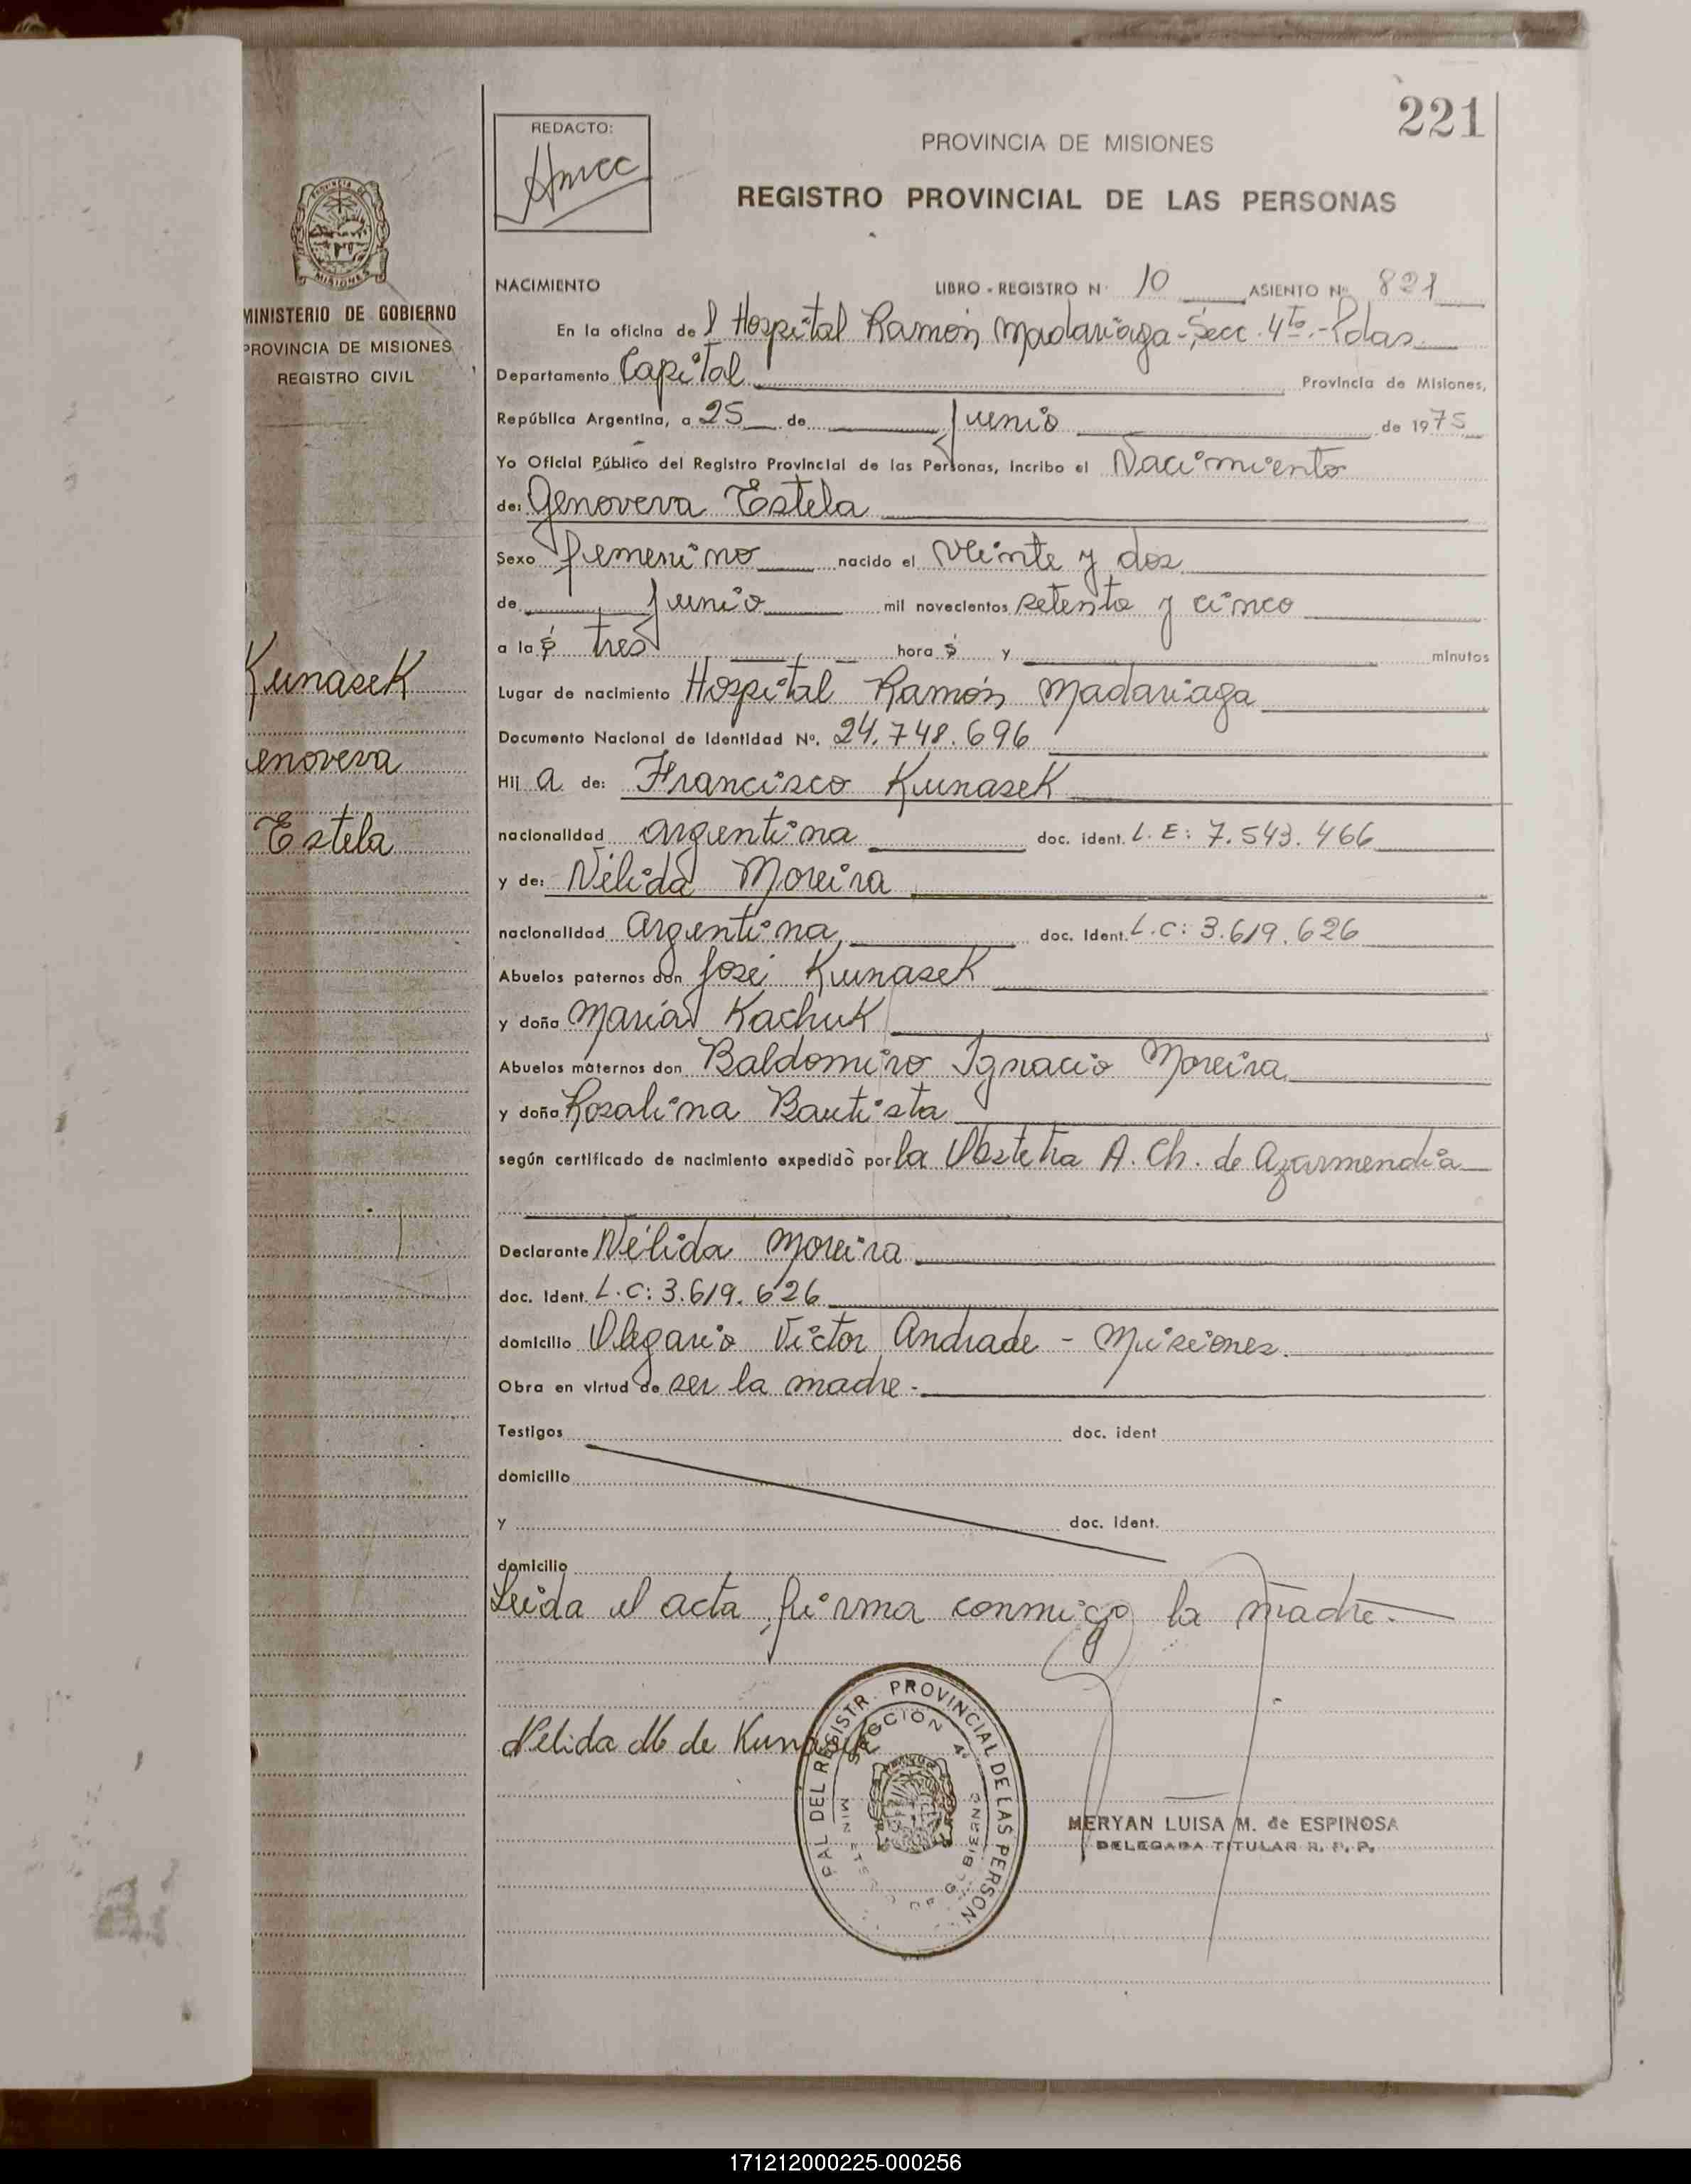 221
REDACTO:
PROVINCIA DE MISIONES
REGISTRO PROVINCIAL DE LAS PERSONAS
MISIONES
MINISTERIO DE GOBIERNO
PROVINCIA DE MISIONES
REGISTRO CIVIL
NACIMIENTO LIBRO - REGISTRO Nº 10 ASIENTO Nº 821
En la oficina del Hospital Ramón Madariaga - Secc. 4ta. - Pdas
Departamento Capital Provincia de Misiones,
República Argentina, a 25 de Junio de 1975
Yo Oficial Público del Registro Provincial de las Personas, incribo el Nacimiento
de: Genoveva Estela
Sexo femenino nacido el veinte y dos
de Junio mil novecientos setenta y cinco
a las tres horas y minutos
Kunasek
enoveva
Estela
Lugar de nacimiento Hospital Ramón Madariaga
Documento Nacional de Identidad Nº. 24.748.696
Hij a de: Francisco Kunasek
nacionalidad argentina doc. ident. L. E: 7.543.466
y de: Nélida Moreira
nacionalidad argentina doc. Ident. L.C: 3.619.626
Abuelos paternos don José Kunasek
y doña María Kachuk
Abuelos maternos don Baldomiro Ignacio Moreira
y doña Rosalina Bautista
según certificado de nacimiento expedido por la Obstetra A. Ch. de Azarmendia
Declarante Nélida Moreira
doc. Ident. L.C: 3.619.626
domicilio Olegario Víctor Andrade - Misiones.
Obra en virtud de ser la madre.
Testigos doc. ident
domicilio
y doc. ident.
domicilio
Leida el acta, firma conmigo la madre.
Nelida M de Kunasek
PAL DEL REGISTR. PROVINCIAL DE LAS PERSON
SECCION 4ª
GOBIERNO
MERYAN LUISA M. de ESPINOSA
DELEGADA TITULAR R. P. P.
171212000225-000256